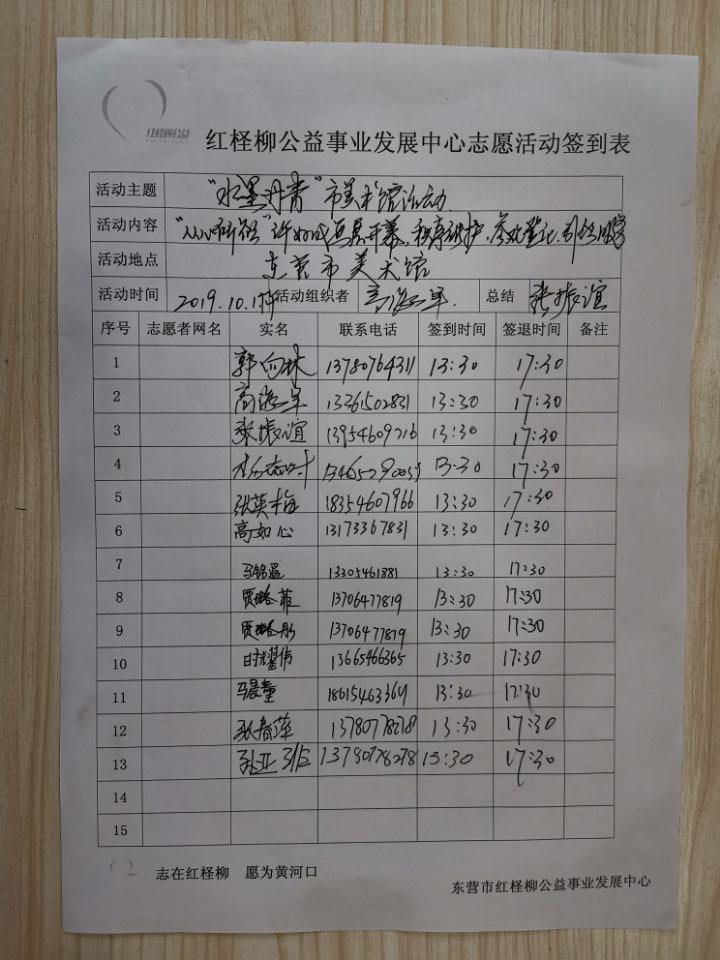 红柽柳公益
红柽柳公益事业发展中心志愿活动签到表
活动主题 "水墨丹青"市美术馆活动
活动内容 画展开幕、秩序维护、引领
活动地点 东营市美术馆
活动时间 2019.10. 活动组织者 高海军 总结 张振谊
序号 志愿者网名 实名 联系电话 签到时间 签退时间 备注
1 郭向林 13780764311 13:30 17:30
2 高海军 13361502831 13:30 17:30
3 张振谊 13954609216 13:30 17:30
4 13:30 17:30
5 张英梅 18354607966 13:30 17:30
6 高如心 13173367831 13:30 17:30
7 13305461881 13:30 17:30
8 贾璐菲 13706477819 13:30 17:30
9 贾璐彤 13706477819 13:30 17:30
10 时耀伟 13665466365 13:30 17:30
11 马晨童 13:30 17:30
12 张春萍 13780778278 13:30 17:30
13 13780778278 13:30 17:30
14
15
志在红柽柳 愿为黄河口
东营市红柽柳公益事业发展中心